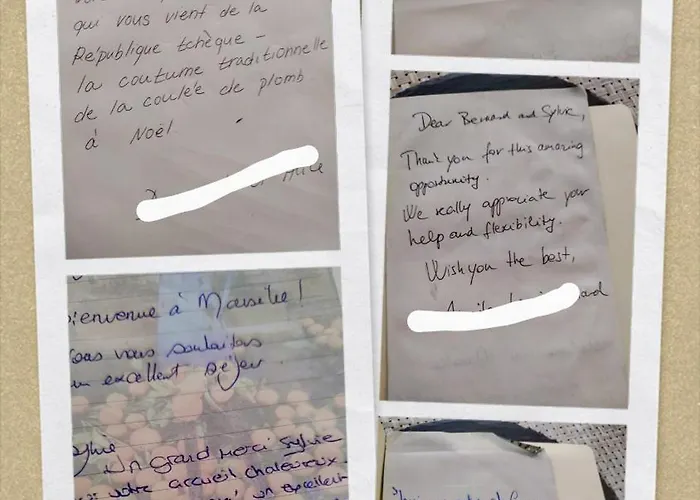 qui vous vient de la
République tchèque -
la coutume traditionnelle
de la coulée de plomb
à Noël
ienvenue à Marseille !
ous vous souhaitons
un excellent séjour.
Sylvie
Un grand merci Sylvie
votre accueil chaleureux
un excellent
Dear Bernard and Sylvie,
Thank you for this amazing
opportunity.
We really appreciate your
help and flexibility.
Wish you the best,
and